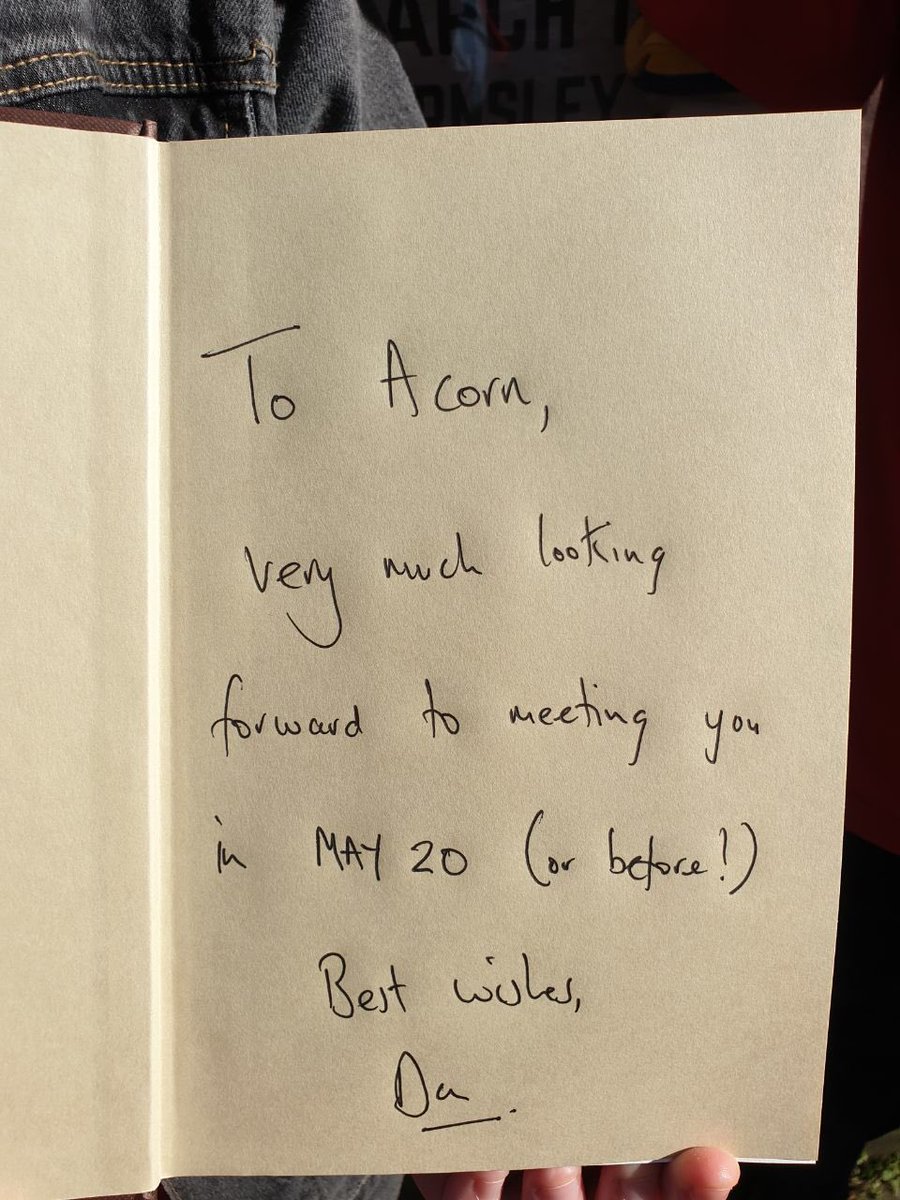 ARCH T
RNSLEY
To Acorn,
very much looking
forward to meeting you
in MAY 20 (or before!)
Best wishes,
Dan.